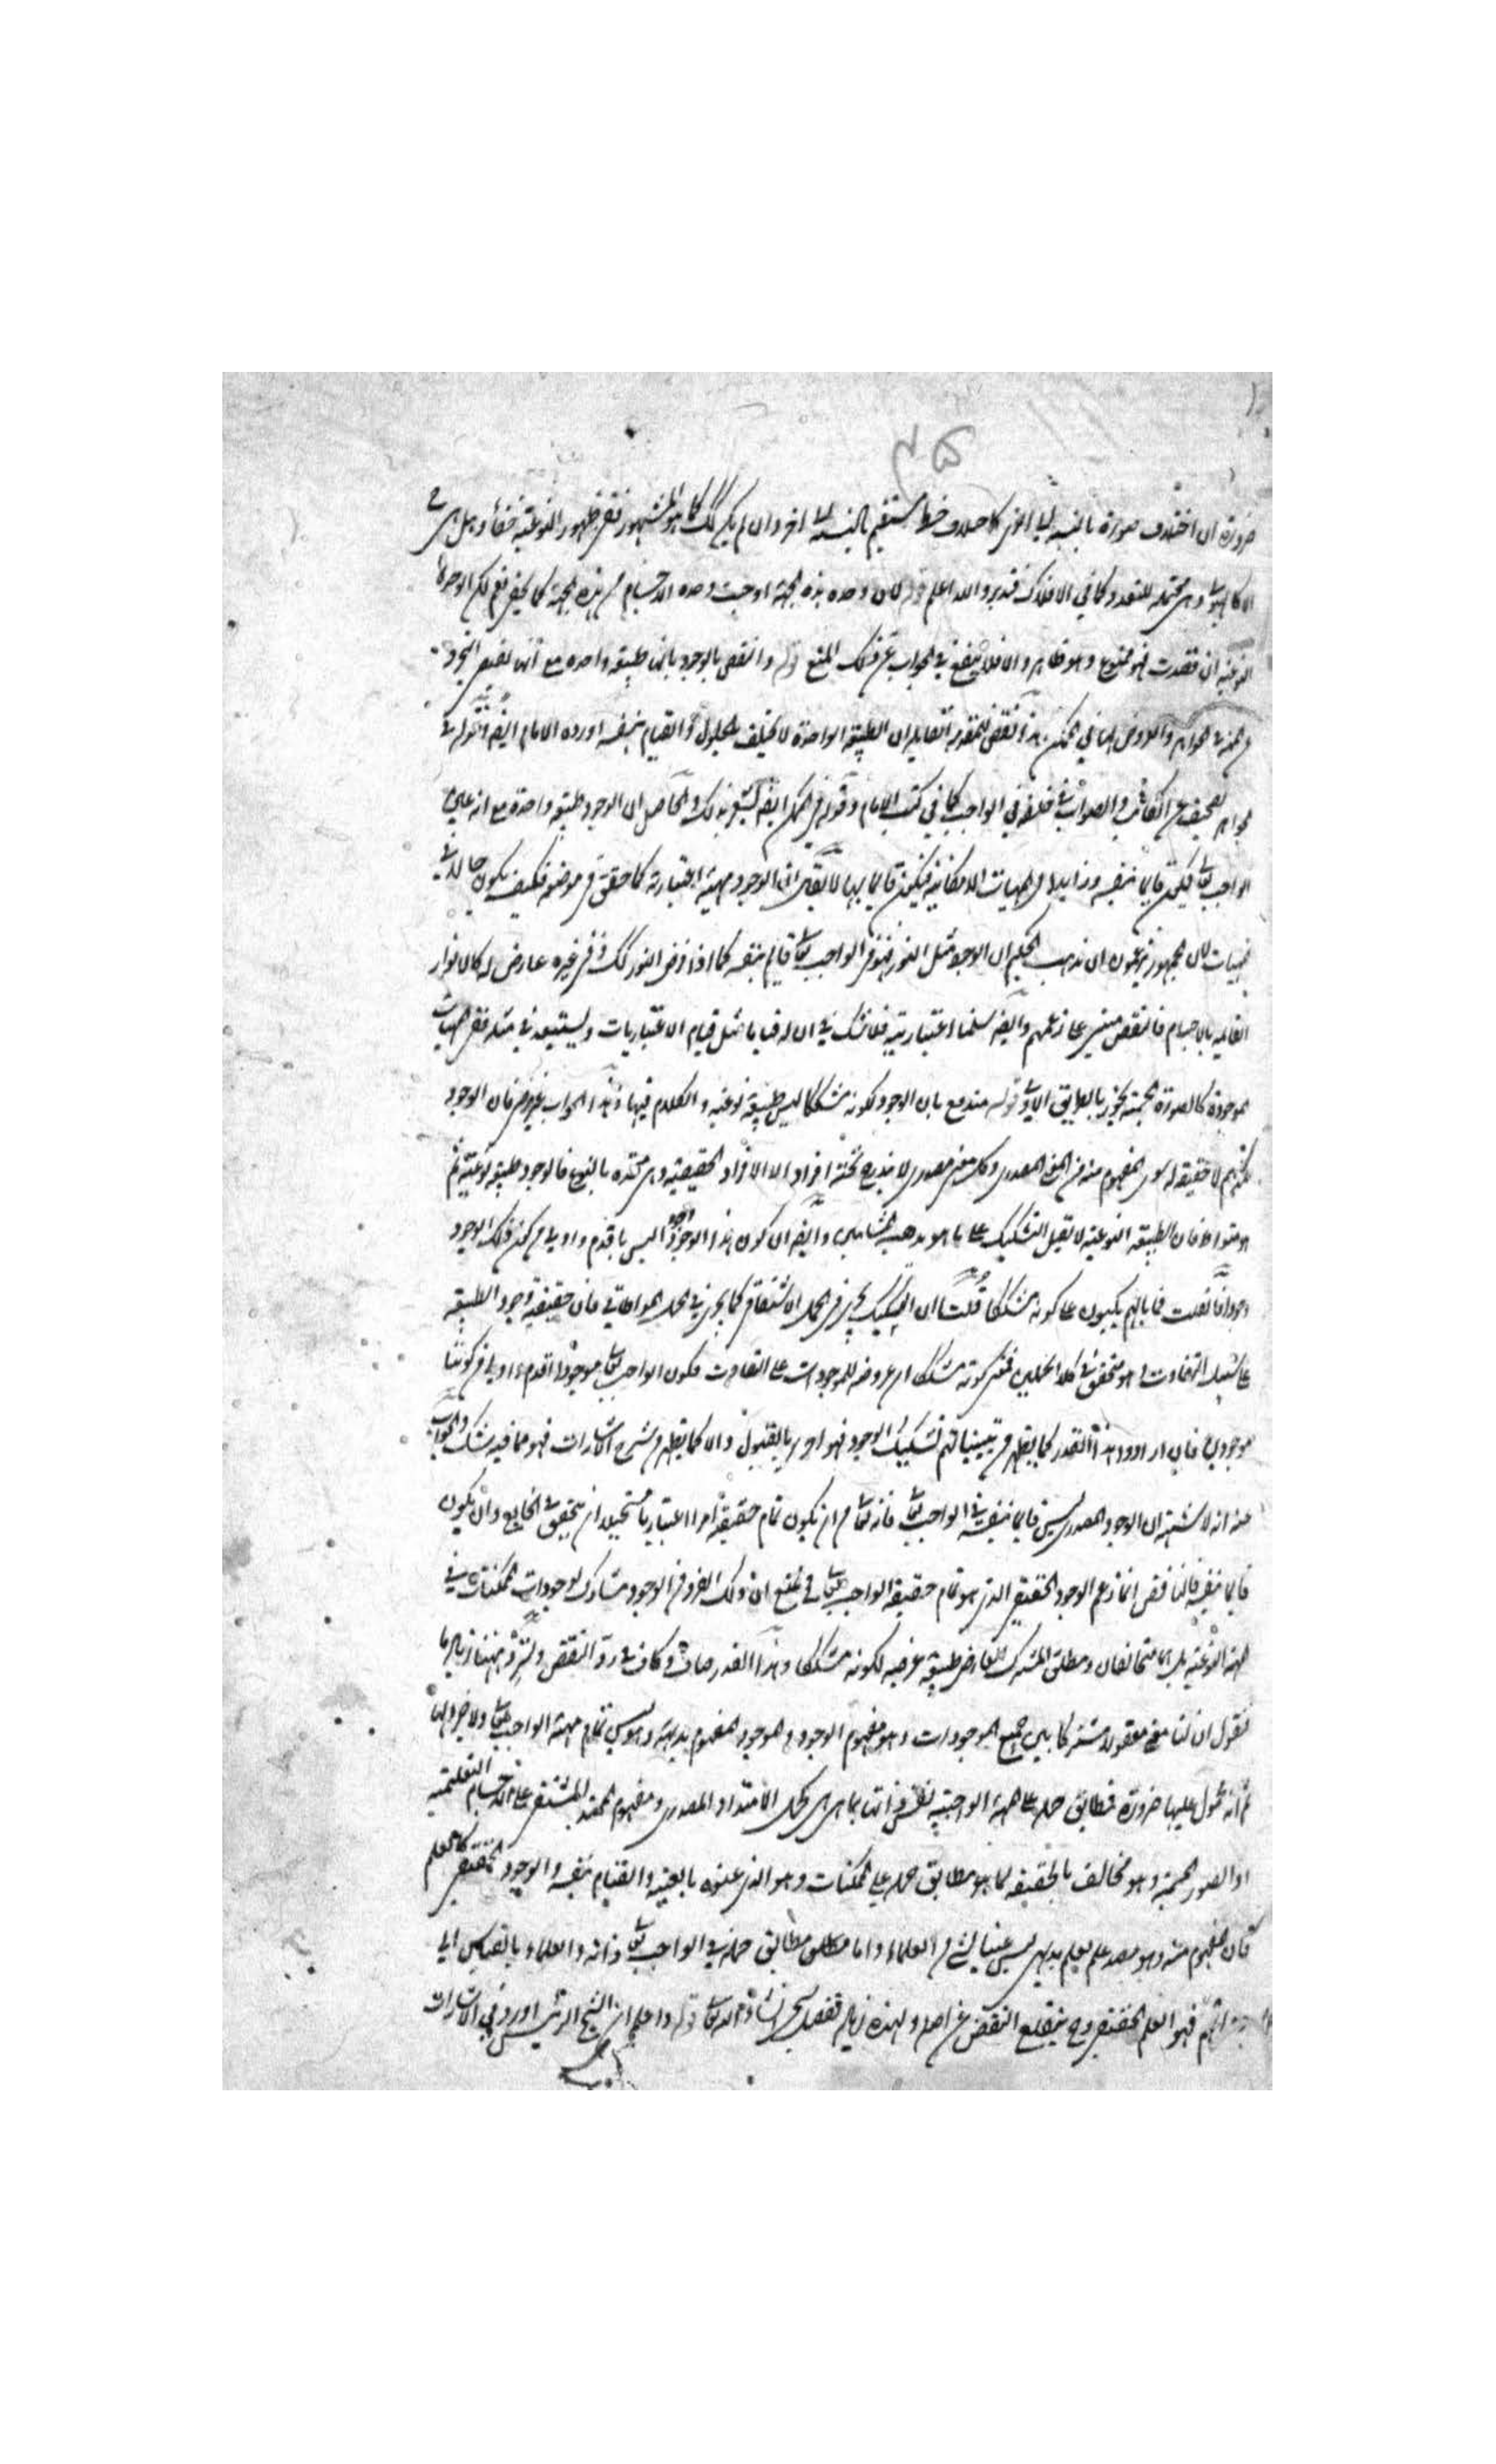 ٤٥
ضرورة ان اختلاف صورة بالنسبة الى اخرى كاختلاف خط مستقيم بالنسبة الى اخر وان لم يكن كك كما هو المشهور ففى ظهور النوعية خفأ وهل هى
الا كالهيولى وهى محتملة للتعدد كما في الافلاك فتدبر والله اعلم قوله لان وحده بذه الجهة اوجبت وحده الاجسام من هذه الجهة
النوعية ان فقدت فهو ممنوع وهو ظاهر والا فلا ينفع في الجواب عن ذلك المنع قوله والنقض بالوجود بانها طبيعة واحده مع انها تقتضى التجرد
والعروض لها في الممكن هذا نقض للمقدمة القايلة ان الطبيعة الواحدة لا تختلف بالحلول والقيام بنفسه اورده الامام ايضا
في الواجب كما في كتب الامام وقوله في الممكن ايضا يشعر بذلك والحاصل ان الوجود طبيعة واحدة مع انه في
الواجب تعالى يكون قايما بنفسه وزايدا في المهيات الامكانية فيكون قايما بها لا يقال ان الوجود مهية اعتبارية كما حقق في موضعه فكيف يكون حالا في
المهيات لان الجمهور يزعمون ان مذهب الحكيم ان الوجود مثل النور فهو في الواجب تعالى قايم بنفسه كما اذا فرض النور كك وفي غيره عارض له كالانوار
القايمة بالاجسام فالنقض مبنى على زعمهم وايضا سلمنا اعتباريته فلا شك في ان له قياما مثل قيام الاعتباريات ويستبعد في مثله ففى المهيات
الموجودة كالصورة الجسمية يجوز بالطريق الاولى قوله مندفع بان الوجود لكونه مشككا ليس طبيعة نوعية والكلام فيها هذا الجواب غير فان الوجود
لا حقيقة له سوى المفهوم منه من المعنى المصدرى وكل معنى مصدرى لا يندرج تحته افراد الا الافراد الحصصية وهى متحدة بالنوع فالوجود طبيعة نوعية
متواطئة فان الطبيعة النوعية لا تقبل التشكيك على ما هو مذهب المشائين وايضا ان كون هذا الوجود وجودا ليس باقدم واولى من كون ذلك الوجود
وجودا فان قلت فما بالهم يكبون على كونه مشككا قلت ان التشكيك يجرى في الحمل الاشتقاقى كما يجرى في الحمل المواطاتى فان حقيقته وجود الطبيعة
على سبيل التفاوت وهو متحقق في كلا الحملين فمعنى كونه مشككا ان عروضه للموجودات على التفاوت فكون الواجب تعالى موجودا اقدم واولى من كوننا
موجودين فان ارادوا هذا القدر كما يظهر من تبيينا تهم تشكيك الوجود فهو احرى بالقبول والا كما يظهر من شرح الاشارات فهو مما فيه شك والجواب
عنه انه لا شبهة ان الوجود المصدرى ليس قايما بنفسه في الواجب تعالى فانه تعالى من ان يكون تمام حقيقته امرا اعتباريا مستحيلا ان يتحقق في الخارج وان يكون
قايما بنفسه فالناقض انما زعم الوجود الحقيقى الذى هو تمام حقيقة الواجب تعالى فح نمنع ان ذلك الفرد من الوجود مشارك لوجودات الممكنات في
المهية النوعية بل هما متخالفان ومطلق المشترك العارض طبيعة عرضية لكونه مشككا وهذا القدر صاف وكاف في رد النقض ولنزد ههنا زيادة ما
فنقول ان لنا معنى معقولا مشتركا بين جميع الموجودات وهو مفهوم الوجود والموجود المفهوم بديهة وليس تمام مهية الواجب تعالى ولا جزءا لها
ثم انه محمول عليها ضرورة فمطابق حمله على المهية الواجبية نفس ذاتها بما هى هى كحمل الامتداد المصدرى ومفهوم الممتد المشتق على الاجسام التعليمية
او الصور الجسمية وهو مخالف بالحقيقة لما هو مطابق حمله على الممكنات وهو الذى عنوه بالعينية والقيام بنفسه والوجود الحقيقى كالعلم
فان المفهوم منه وهو مصدر علم يعلم بديهى ليس عينا لشئ من العلماء واما مطابق حمله في الواجب تعالى ذاته والعلماء بالقياس الى
فهو العلم الحقيقى وح ينقلع النقض عن اصله ولهذه زيادة تفصيل سنح انشاء الله تعالى قوله واعلم ان الشيخ الرئيس اورد في الاشارات